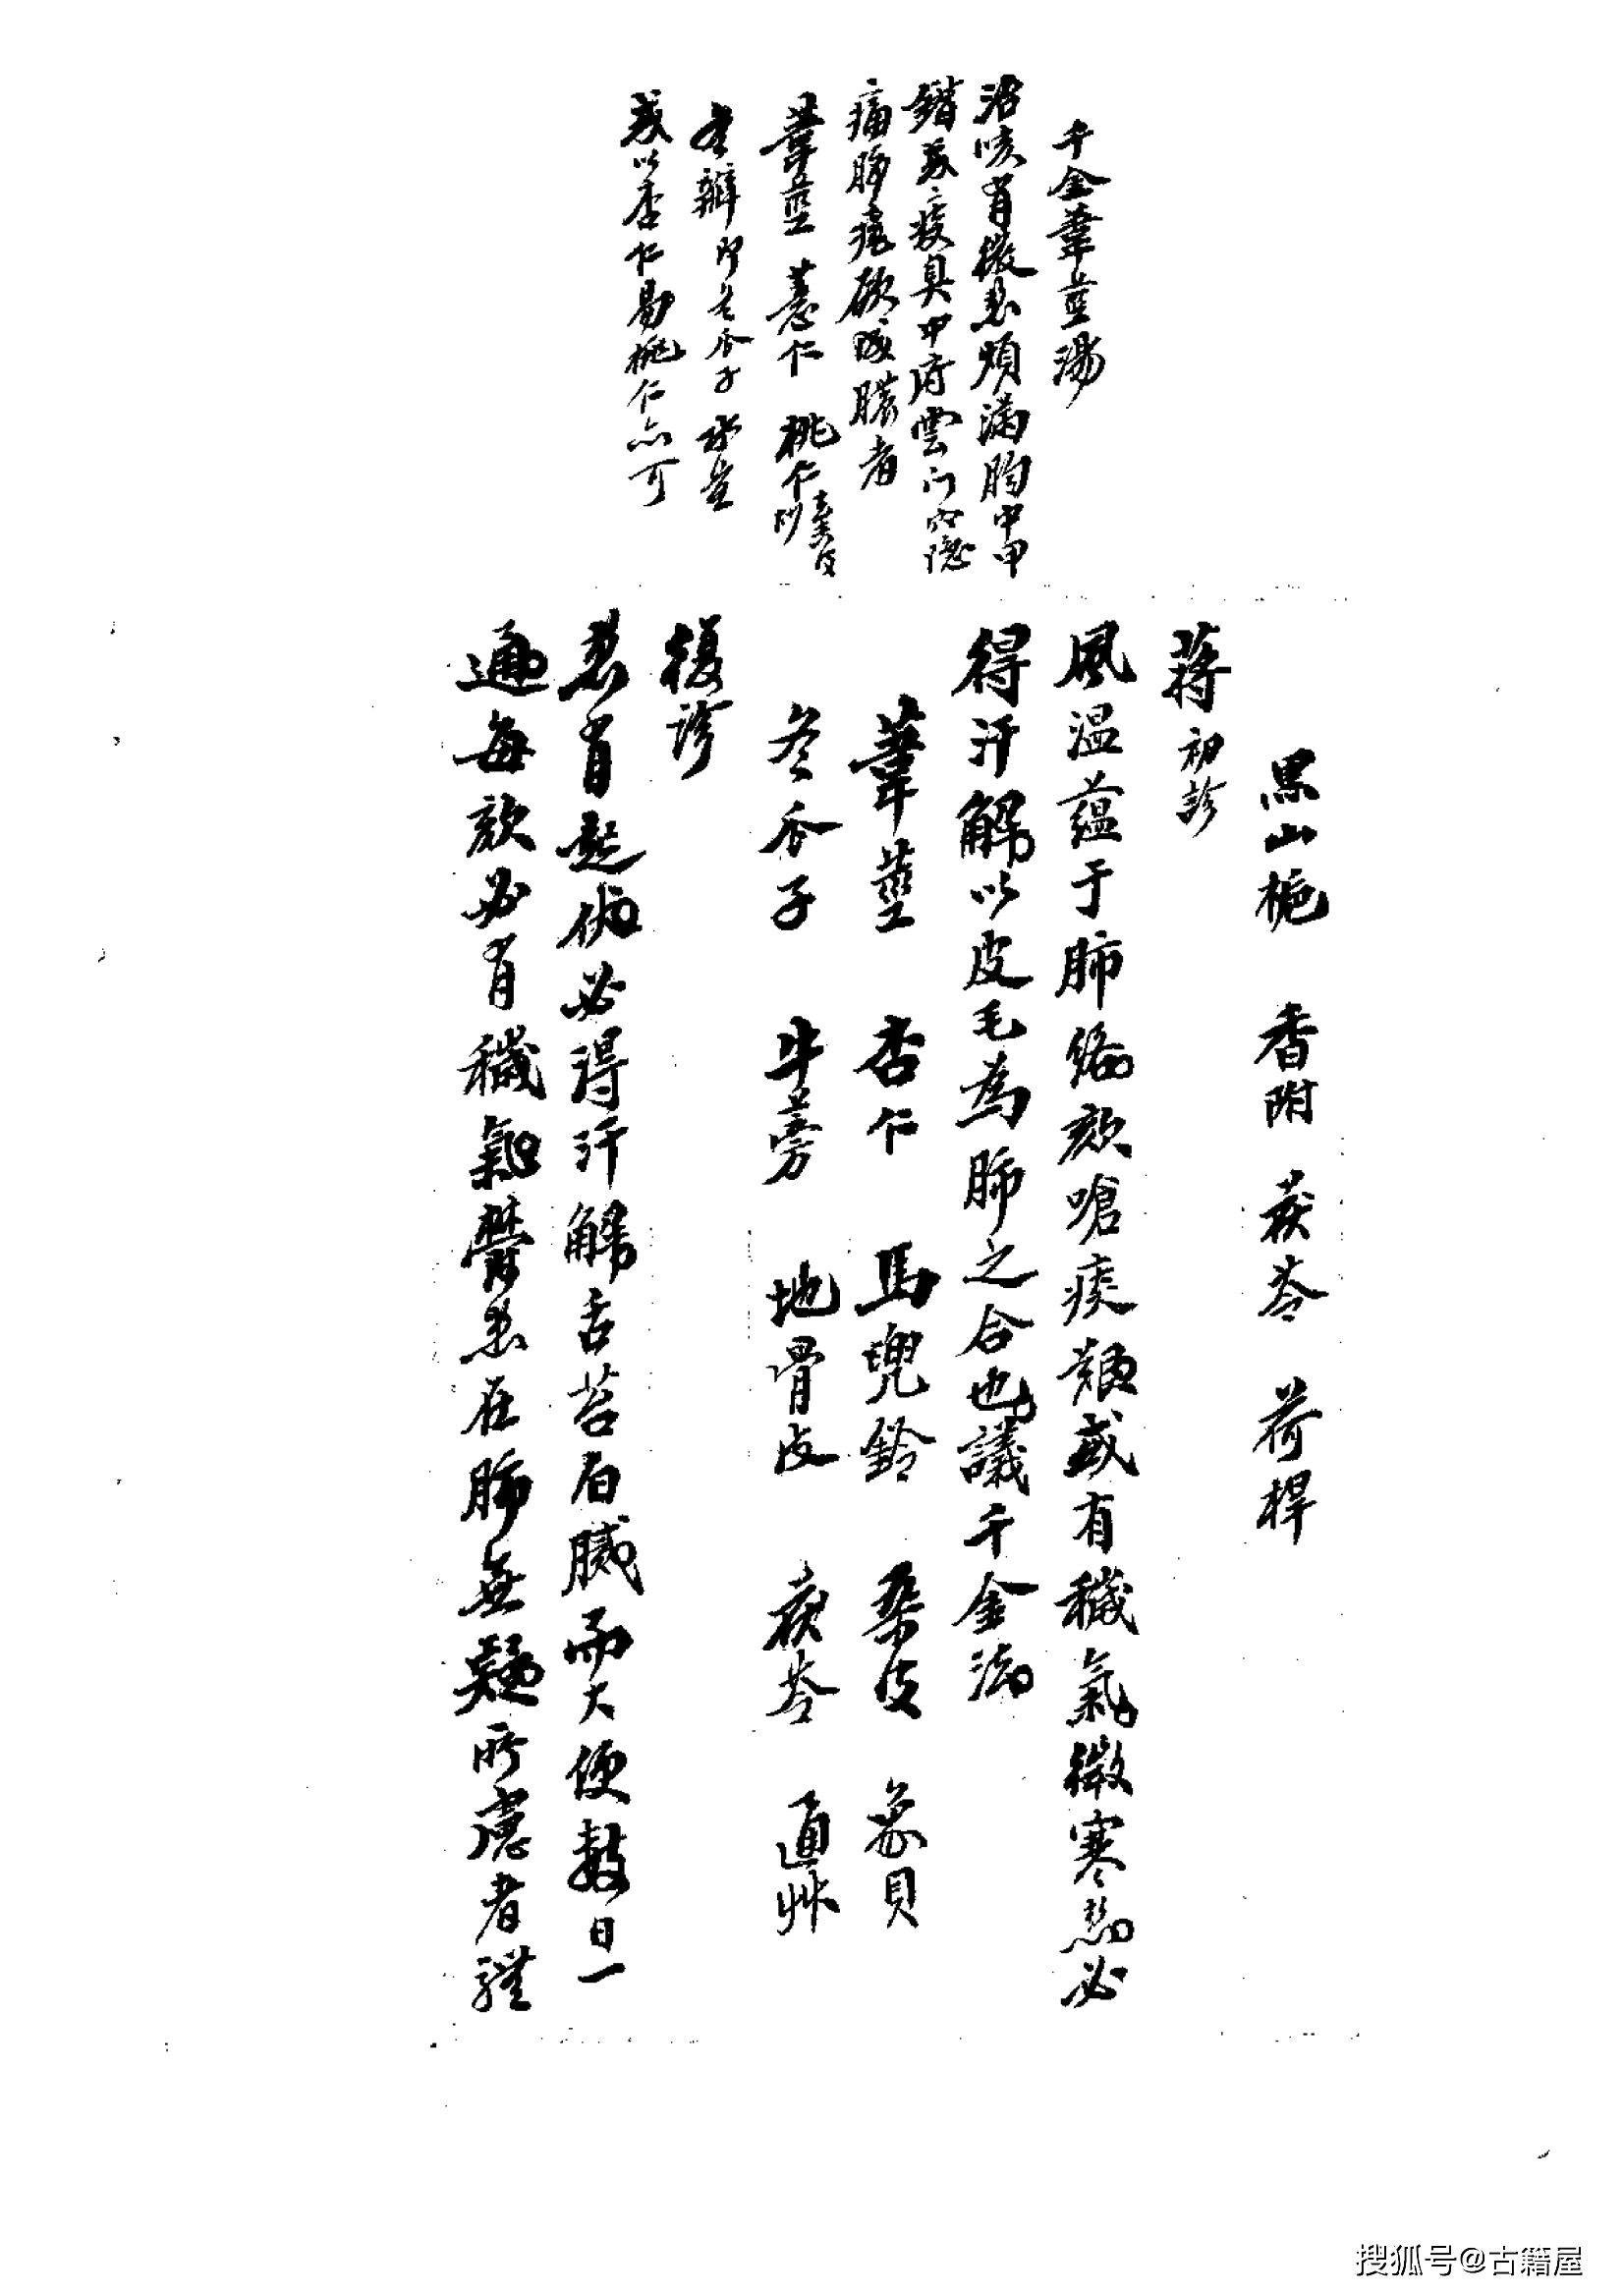 千金葦莖湯
治咳有微熱煩滿胸中甲
錯或痰臭中府雲门穴隐
痛肺癰欲成膿者
葦莖 薏仁 桃仁
冬瓣即冬瓜子 水煎
或以杏仁易桃仁亦可
黑山梔 香附 茯苓 荷桿
蔣 初診
風温蘊于肺絡欬嗆痰頗盛有穢氣微寒熱必
得汗解以皮毛為肺之合也議千金法
葦莖 杏仁 馬兜鈴 桑皮 象貝
冬瓜子 牛蒡 地骨皮 茯苓 通艸
復診
熱有起伏必得汗解舌苔白膩而大便數日一
通每欬必有穢氣欝熱在肺無疑所慮者
搜狐号@古籍屋